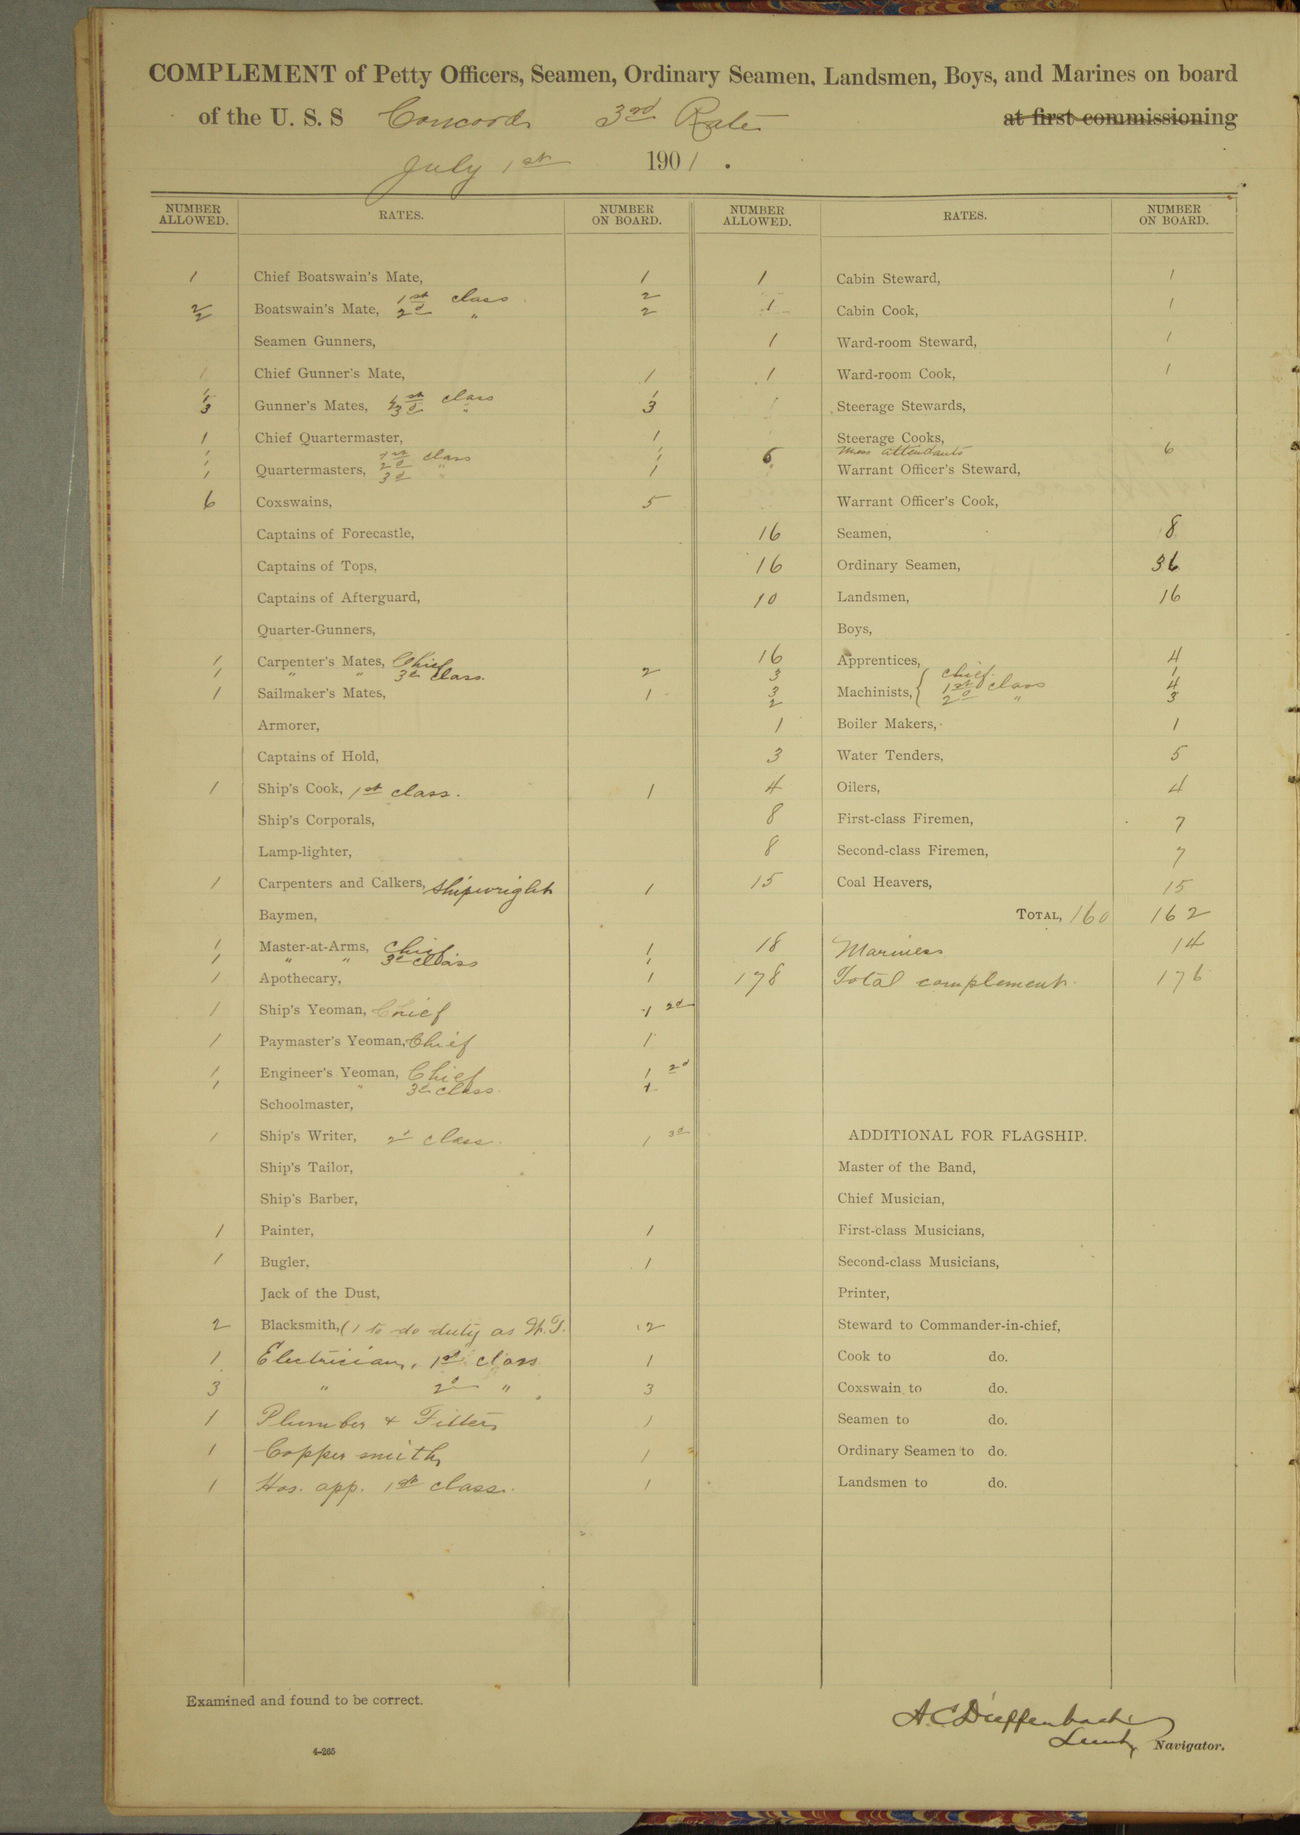 COMPLEMENT of Petty Officers, Seamen, Ordinary Seamen, Landsmen, Boys, and Marines on board
of the U. S. S Concord 3rd Rate at first commissioning
July 1st 1901.
NUMBER ALLOWED. RATES. NUMBER ON BOARD. NUMBER ALLOWED. RATES. NUMBER ON BOARD.
1 Chief Boatswain's Mate, 1
2 1st class 2
2 Boatswain's Mate, 2d " 2
Seamen Gunners,
1 Chief Gunner's Mate, 1
1 1st class 1
3 Gunner's Mates, 3d " 3
1 Chief Quartermaster, 1
1 1st class 1
1 Quartermasters, 2d " 1
1 3d 1
6 Coxswains, 5
Captains of Forecastle,
Captains of Tops,
Captains of Afterguard,
Quarter-Gunners,
1 Carpenter's Mates, Chief
1 " " 3d class. 2
1 Sailmaker's Mates, 1
Armorer,
Captains of Hold,
1 Ship's Cook, 1st class. 1
Ship's Corporals,
Lamp-lighter,
1 Carpenters and Calkers, Shipwright 1
Baymen,
1 Master-at-Arms, Chief 1
1 " " 3d class 1
1 Apothecary, 1
1 Ship's Yeoman, Chief 1 2d
1 Paymaster's Yeoman, Chief 1
1 Engineer's Yeoman, Chief 1 2d
1 " 3d class. 1
Schoolmaster,
1 Ship's Writer, 2d class. 1 3d
Ship's Tailor,
Ship's Barber,
1 Painter, 1
1 Bugler, 1
Jack of the Dust,
2 Blacksmith, (1 to do duty as W.T. 2
1 Electrician, 1st class 1
3 " 2d " 3
1 Plumber & Fitter, 1
1 Copper smith, 1
1 Hos. app. 1st class. 1
1 Cabin Steward, 1
1 Cabin Cook, 1
1 Ward-room Steward, 1
1 Ward-room Cook, 1
Steerage Stewards,
Steerage Cooks,
6 Mess attendants 6
Warrant Officer's Steward,
Warrant Officer's Cook,
16 Seamen, 8
16 Ordinary Seamen, 36
10 Landsmen, 16
Boys,
16 Apprentices, 4
3 Chief. 1
3 Machinists, { 1st class 4
2 2d " 3
1 Boiler Makers, 1
3 Water Tenders, 5
4 Oilers, 4
8 First-class Firemen, 7
8 Second-class Firemen, 7
15 Coal Heavers, 15
TOTAL, 160 162
18 Mariners 14
178 Total complement. 176
ADDITIONAL FOR FLAGSHIP.
Master of the Band,
Chief Musician,
First-class Musicians,
Second-class Musicians,
Printer,
Steward to Commander-in-chief,
Cook to do.
Coxswain to do.
Seamen to do.
Ordinary Seamen to do.
Landsmen to do.
Examined and found to be correct.
A.C. Dieffenbach
Lieut, Navigator.
4-265